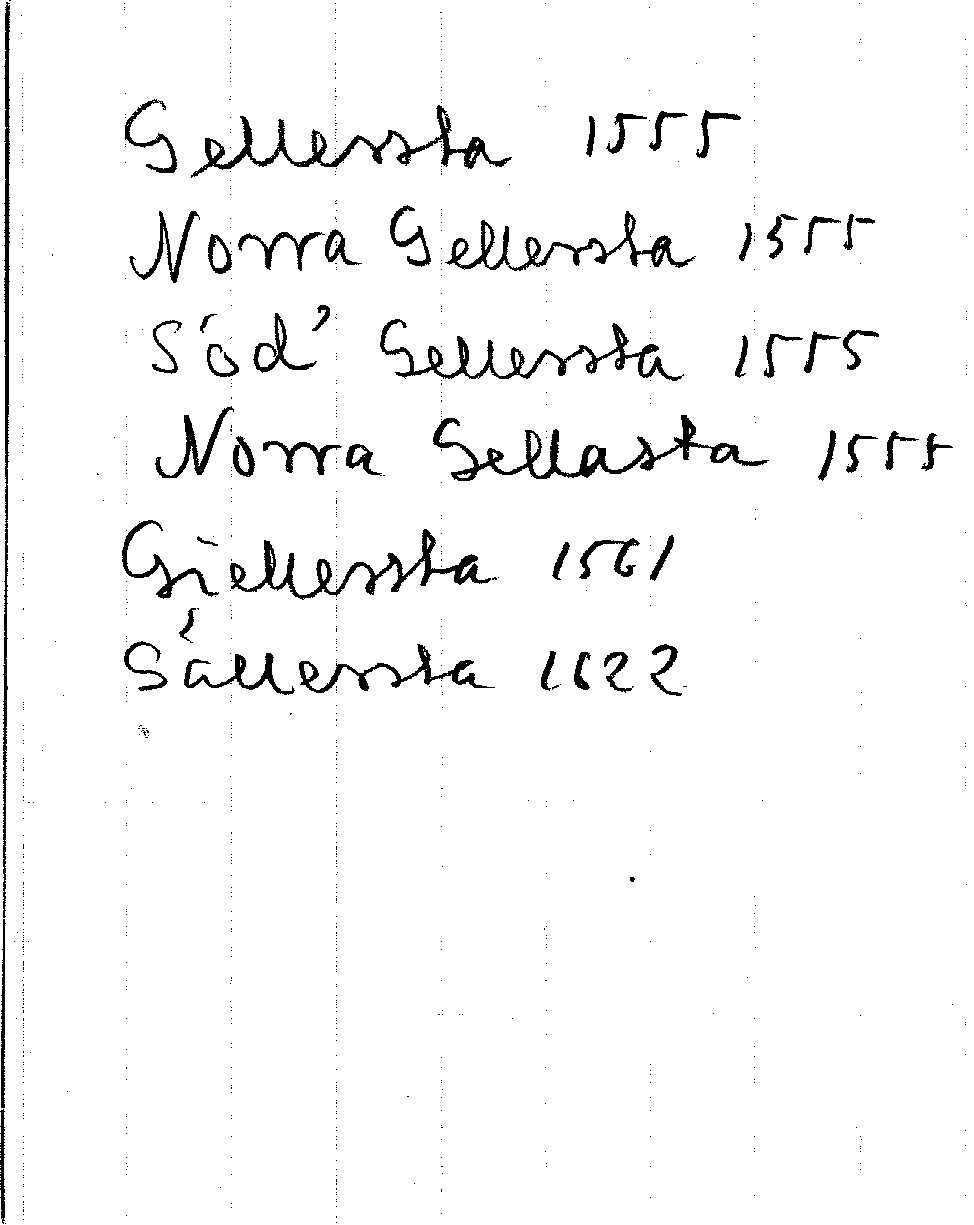 Gellerssta 1555
Norra Gellerssta 1555
Söd' Gellerssta 1555
Norra Gellasta 1555
Giellerssta 1561
Gällerssta 1622